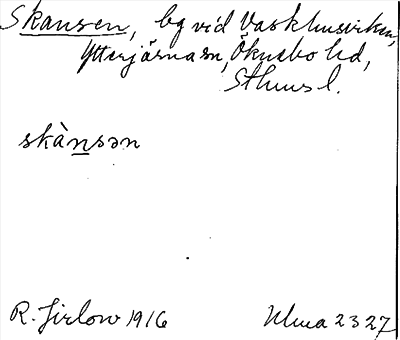 Skansen, bg vid Vaskhusviken,
Ytterjärna sn, Öknebo hd,
Sthms l.
skànsən
R. Jirlow 1916 Ulma 2327